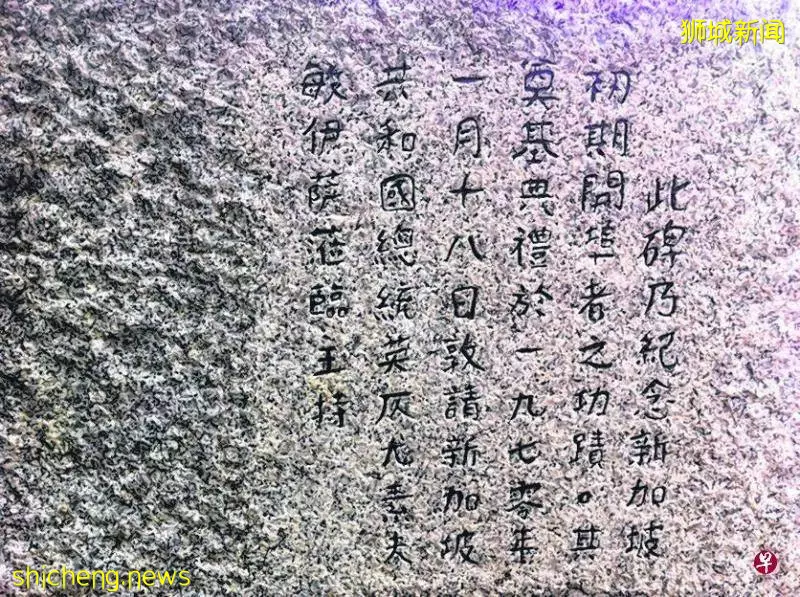 狮城新闻
此碑乃紀念新加坡
初期開埠者之功蹟。其
奠基典禮於一九七零年
一月十八日敦請新加坡
共和國總統英厌尤素夫
敏伊薩蒞臨主持
早
shicheng.news